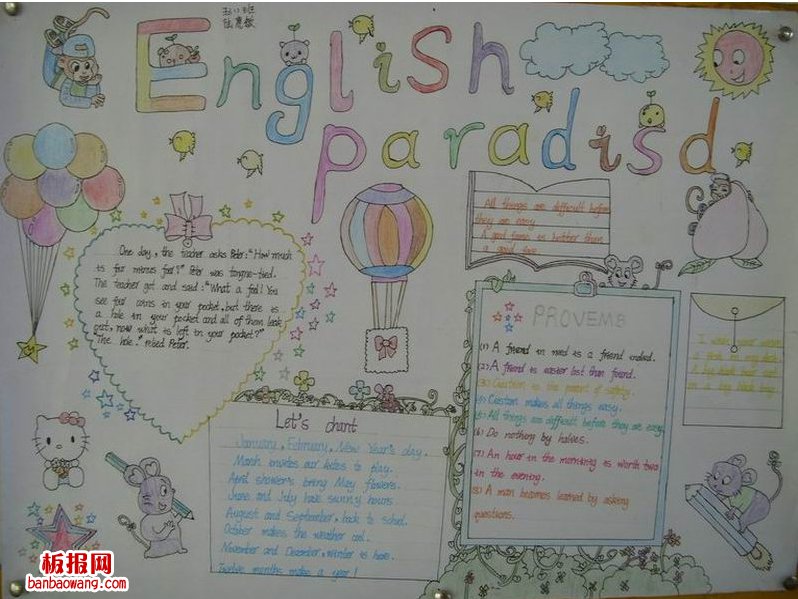 English
paradisd
All things are difficult before
they are easy
A good fame is better than
a good face
One day, the teacher asks Peter: "How much
is four minus four?" Peter was tongue-tied.
The teacher got and said: "What a fool! You
see four coins in your pocket, but there is
a hole in your pocket and all of them leak
out, now what is left in your pocket?"
The hole." replied Peter.
PROVEMB
(1) A friend in need is a friend indeed.
(2) A friend is easier lost than found.
(3) Custion is the parent of
(4) Custom makes all things easy.
(5) All things are difficult before they are easy
(6) Do nothing by halves.
(7) An hour in the morning is worth two
in the evening.
(8) A man becomes learned by asking
questions.
Let's chant
January, February, New Year's day.
March invites our kites to play.
April showers bring May flowers.
June and July have sunny hours
August and September, back to school.
October makes the weather cool.
November and December, winter is here.
Twelve months make a year!
板报网
banbaowang.com